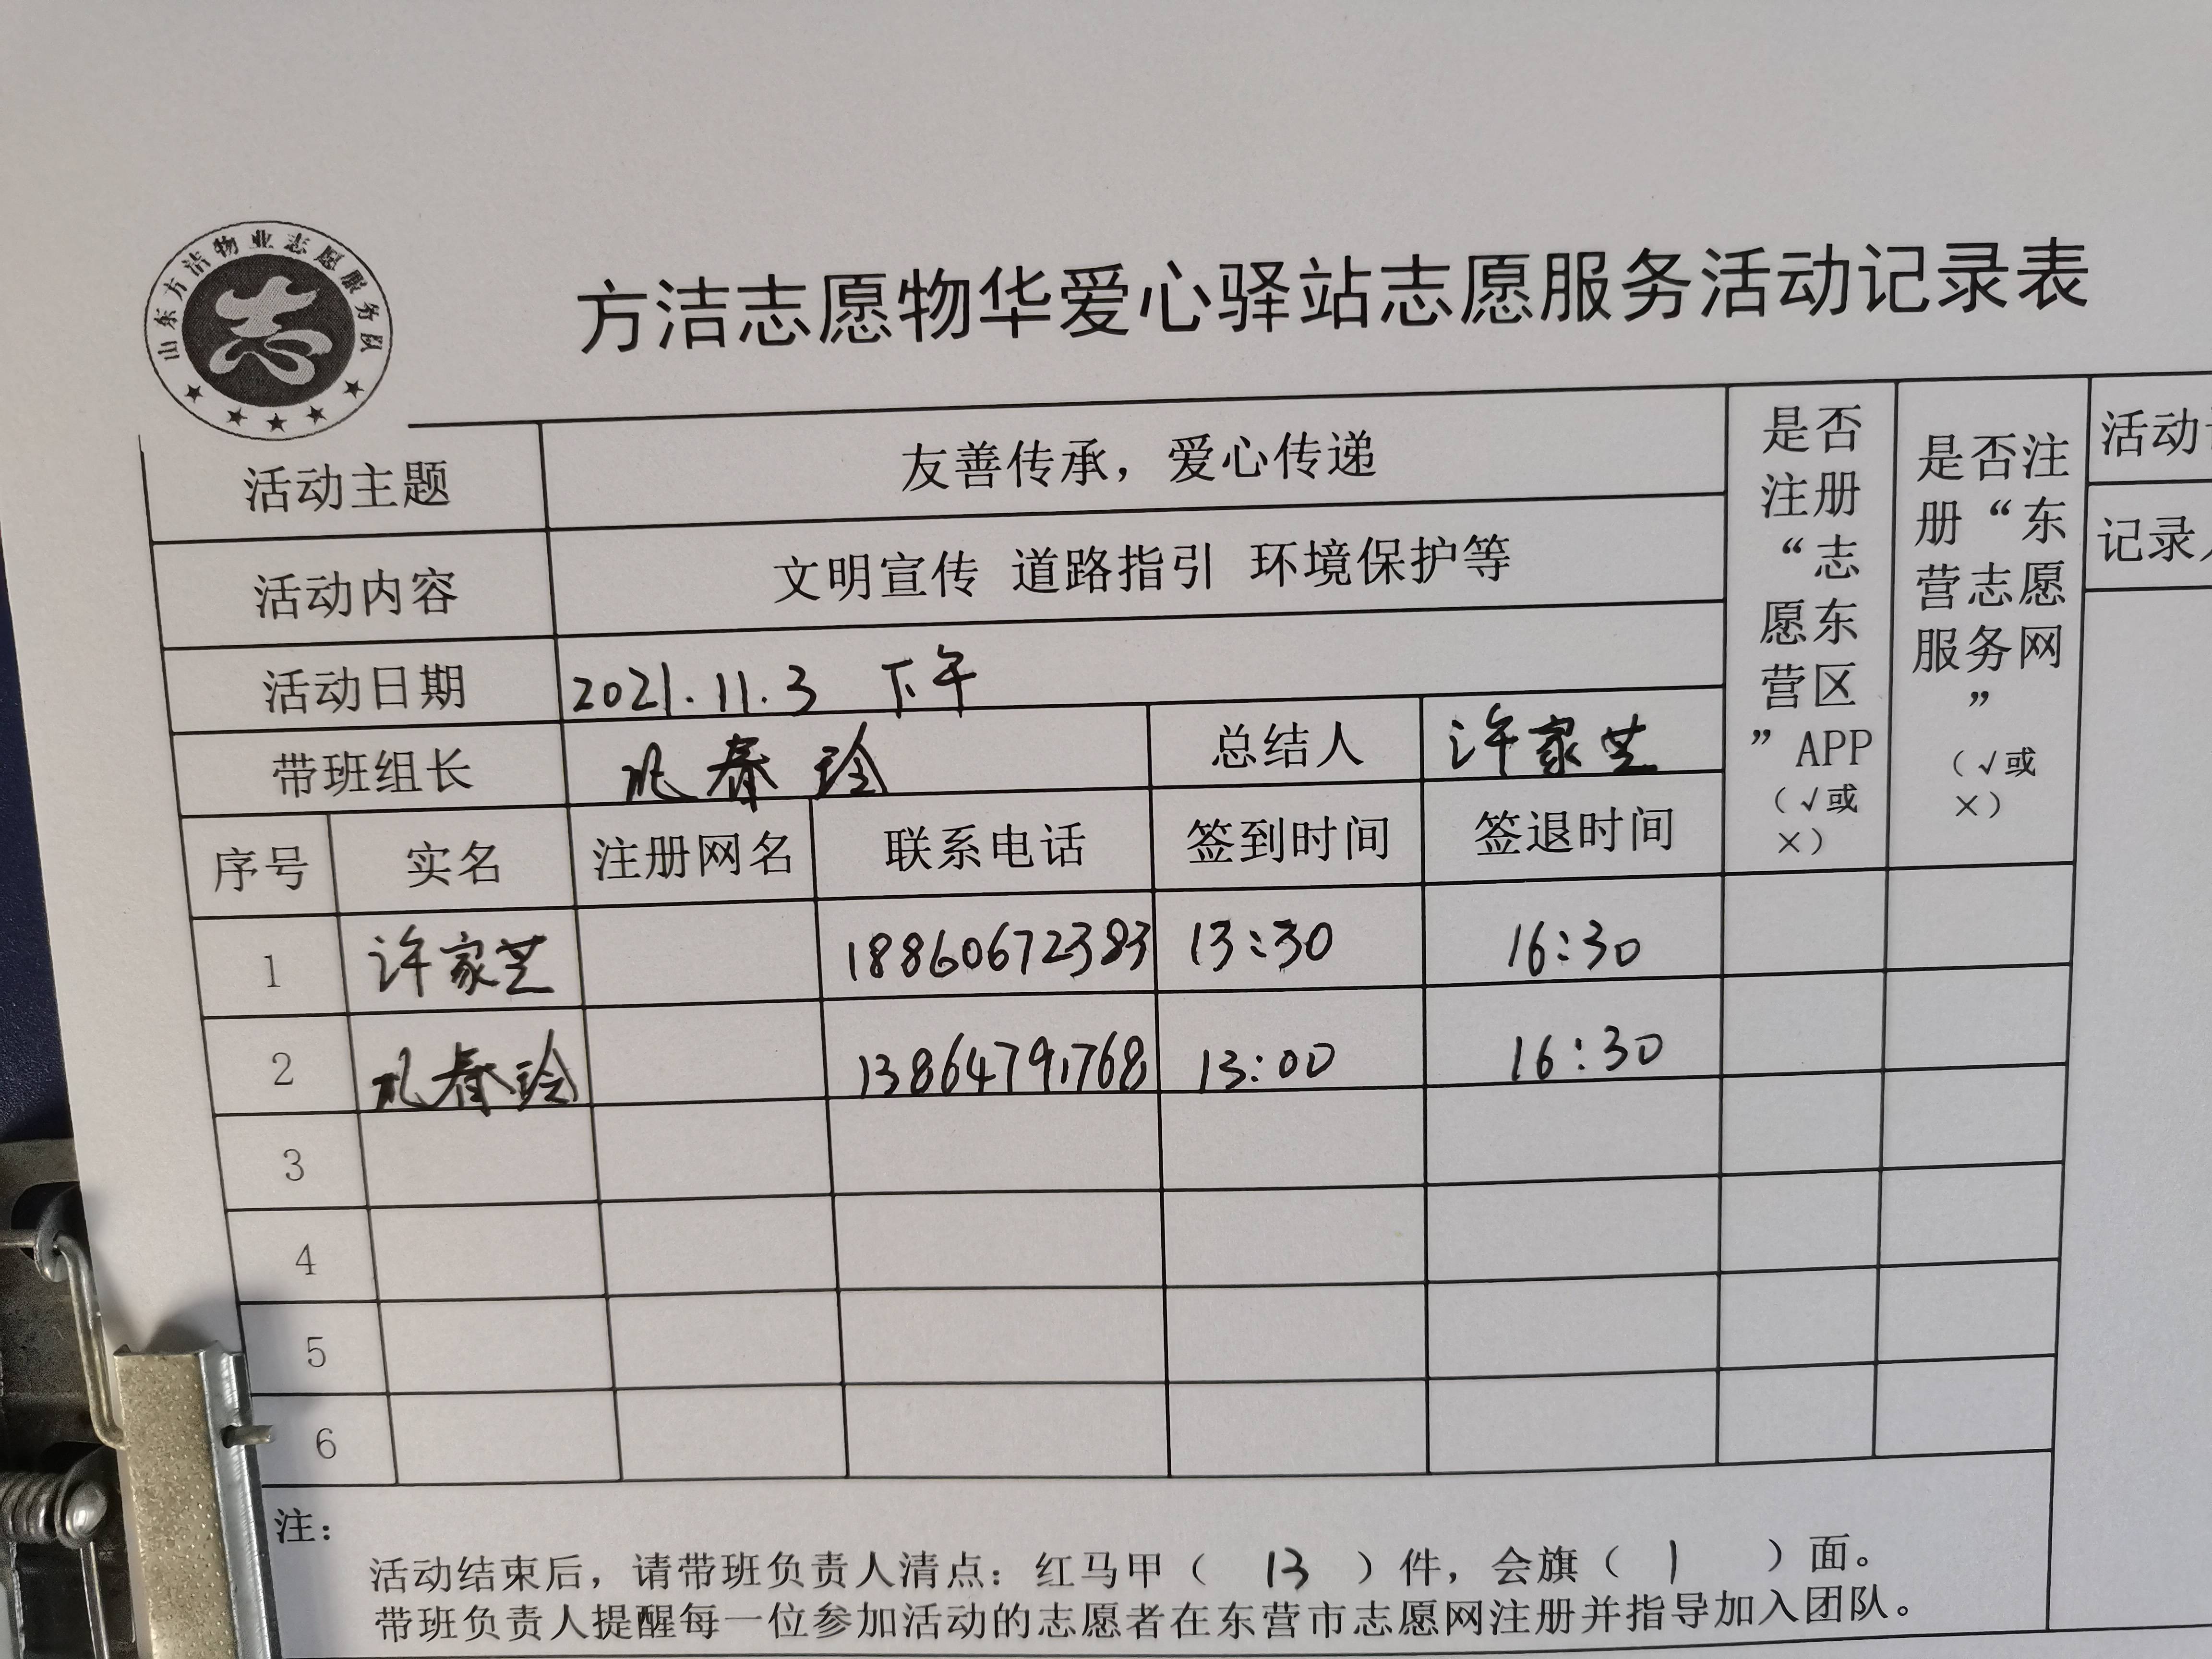 山东方洁物业志愿服务队
方洁志愿物华爱心驿站志愿服务活动记录表
活动主题 友善传承，爱心传递
活动内容 文明宣传 道路指引 环境保护等
活动日期 2021.11.3 下午
带班组长 春玲 总结人 许家芝
是否注册“志愿东营区”APP（√或×）
是否注册“东营志愿服务网”（√或×）
活动
记录
序号 实名 注册网名 联系电话 签到时间 签退时间
1 许家芝 18860672383 13:30 16:30
2 春玲 13864791768 13:00 16:30
3
4
5
6
注：
活动结束后，请带班负责人清点：红马甲（ 13 ）件，会旗（ 1 ）面。
带班负责人提醒每一位参加活动的志愿者在东营市志愿网注册并指导加入团队。